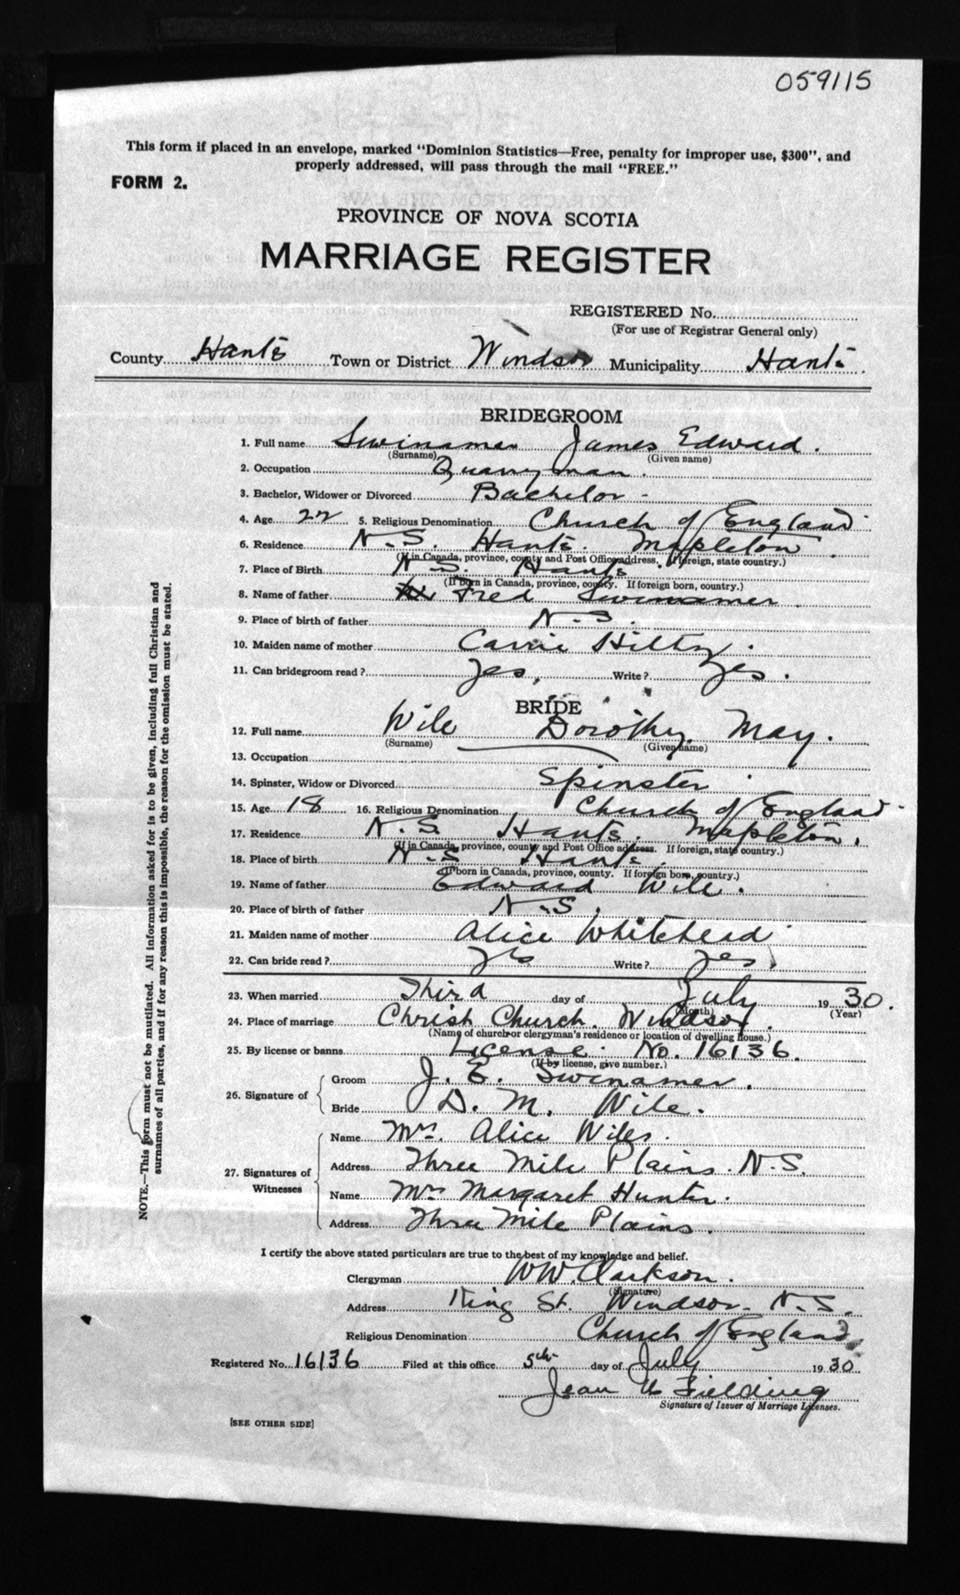 059115
This form if placed in an envelope, marked "Dominion Statistics—Free, penalty for improper use, $300", and
properly addressed, will pass through the mail "FREE."
FORM 2.
PROVINCE OF NOVA SCOTIA
MARRIAGE REGISTER
REGISTERED No.
(For use of Registrar General only)
County Hants Town or District Windsor Municipality Hants
BRIDEGROOM
1. Full name Swinamer James Edward.
(Surname) (Given name)
2. Occupation Quarryman.
3. Bachelor, Widower or Divorced Bachelor -
4. Age 22 5. Religious Denomination Church of England
6. Residence N.S. Hants. Mapleton
(If in Canada, province, county and Post Office address. If foreign, state country.)
7. Place of Birth N.S. Hants
(If born in Canada, province, county. If foreign born, country.)
8. Name of father Fred Swinamer.
9. Place of birth of father N.S.
10. Maiden name of mother Carrie Hiltz.
11. Can bridegroom read? Yes, Write? Yes.
BRIDE
12. Full name Wile Dorothy May.
(Surname) (Given name)
13. Occupation
14. Spinster, Widow or Divorced Spinster
15. Age 18 16. Religious Denomination Church of England
17. Residence N.S. Hants. Mapleton.
(If in Canada, province, county and Post Office address. If foreign, state country.)
18. Place of birth N.S Hants.
(If born in Canada, province, county. If foreign born, country.)
19. Name of father Edward Wile.
20. Place of birth of father N.S.
21. Maiden name of mother Alice Whitehead
22. Can bride read? Yes Write? Yes
23. When married Third day of July 1930.
(Month) (Year)
24. Place of marriage Christ Church. Windsor.
(Name of church or clergyman's residence or location of dwelling house.)
25. By license or banns License. No. 16136.
(If by license, give number.)
26. Signature of
Groom J. E. Swinamer.
Bride D. M. Wile.
27. Signatures of Witnesses
Name Mrs. Alice Wiles.
Address Three Mile Plains. N.S.
Name Mrs Margaret Hunter.
Address Three Mile Plains.
I certify the above stated particulars are true to the best of my knowledge and belief.
Clergyman WW. Clarkson.
(Signature)
Address King St. Windsor. N.S.
Religious Denomination Church of England
Registered No. 16136 Filed at this office 5th day of July 1930
Jean Fielding
Signature of Issuer of Marriage Licenses.
[SEE OTHER SIDE]
NOTE.—This form must not be mutilated. All information asked for is to be given, including full Christian and
surnames of all parties, and if for any reason this is impossible, the reason for the omission must be stated.